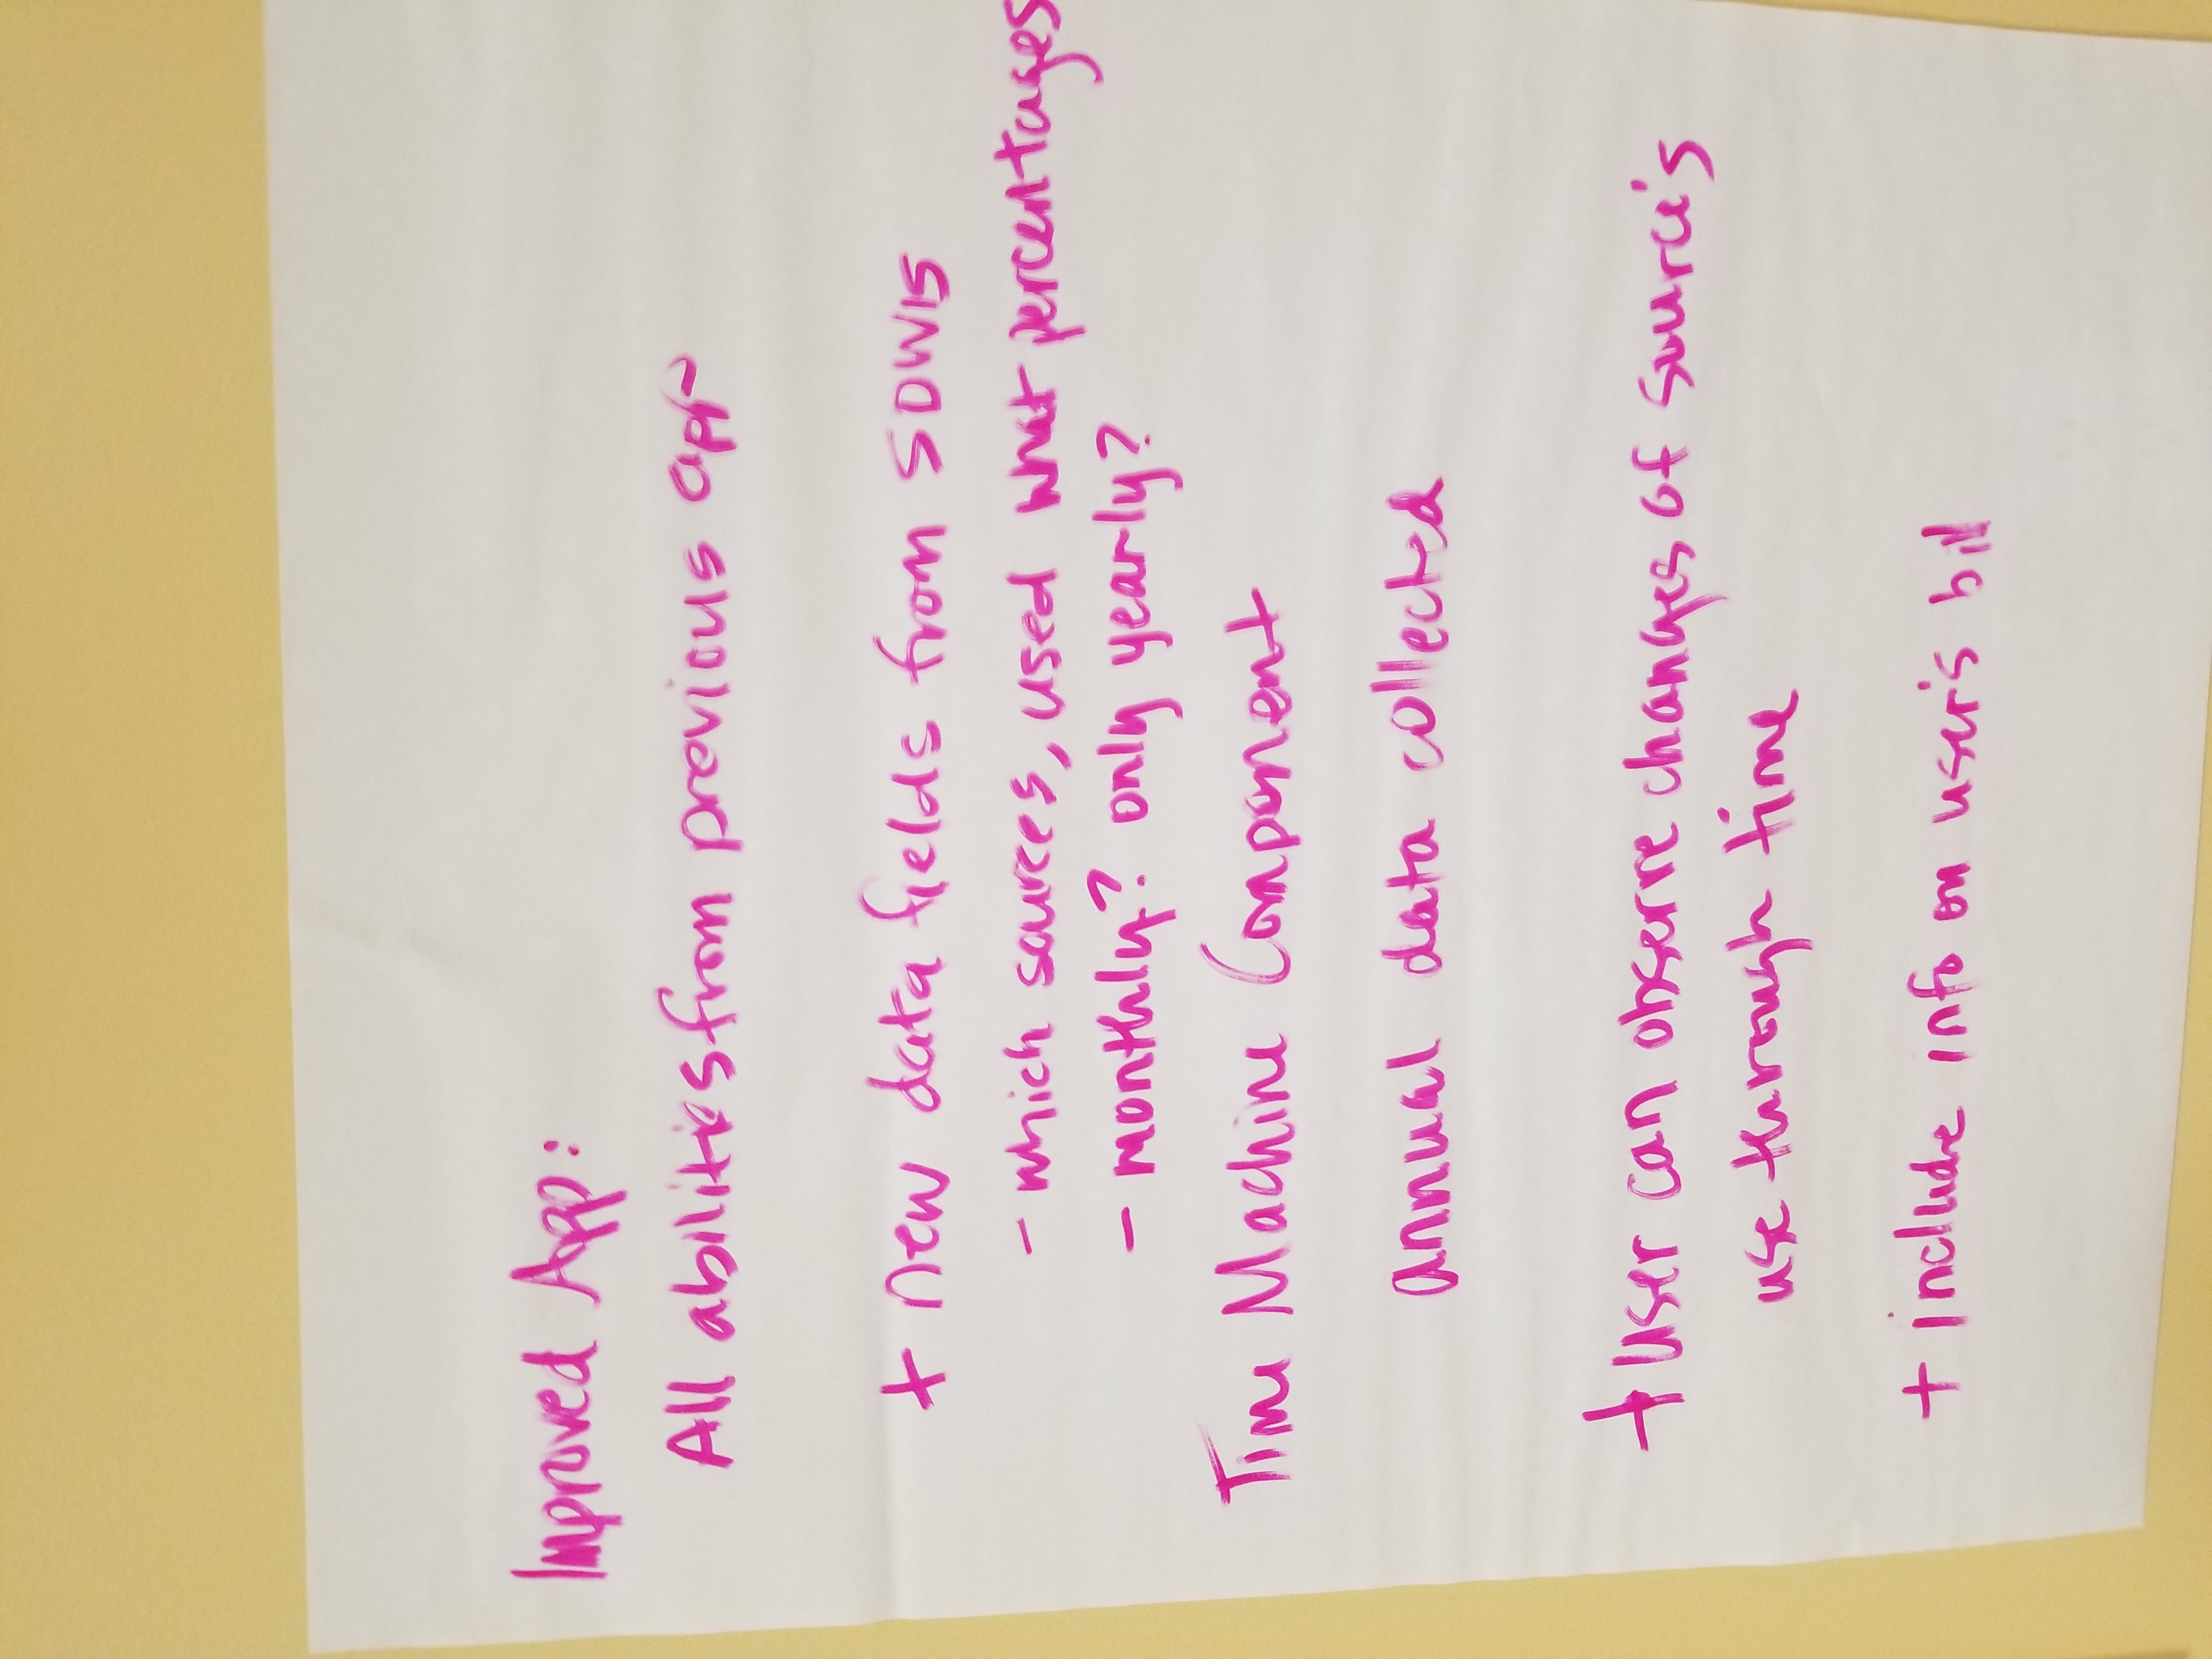 Improved App:
All abilities from previous app
+ new data fields from SDWIS
- which sources, used what percentages
- monthly? only yearly?
Time Machine Component
annual data collected
+ User can observe changes of source's
use through time
+ include info on user's bill